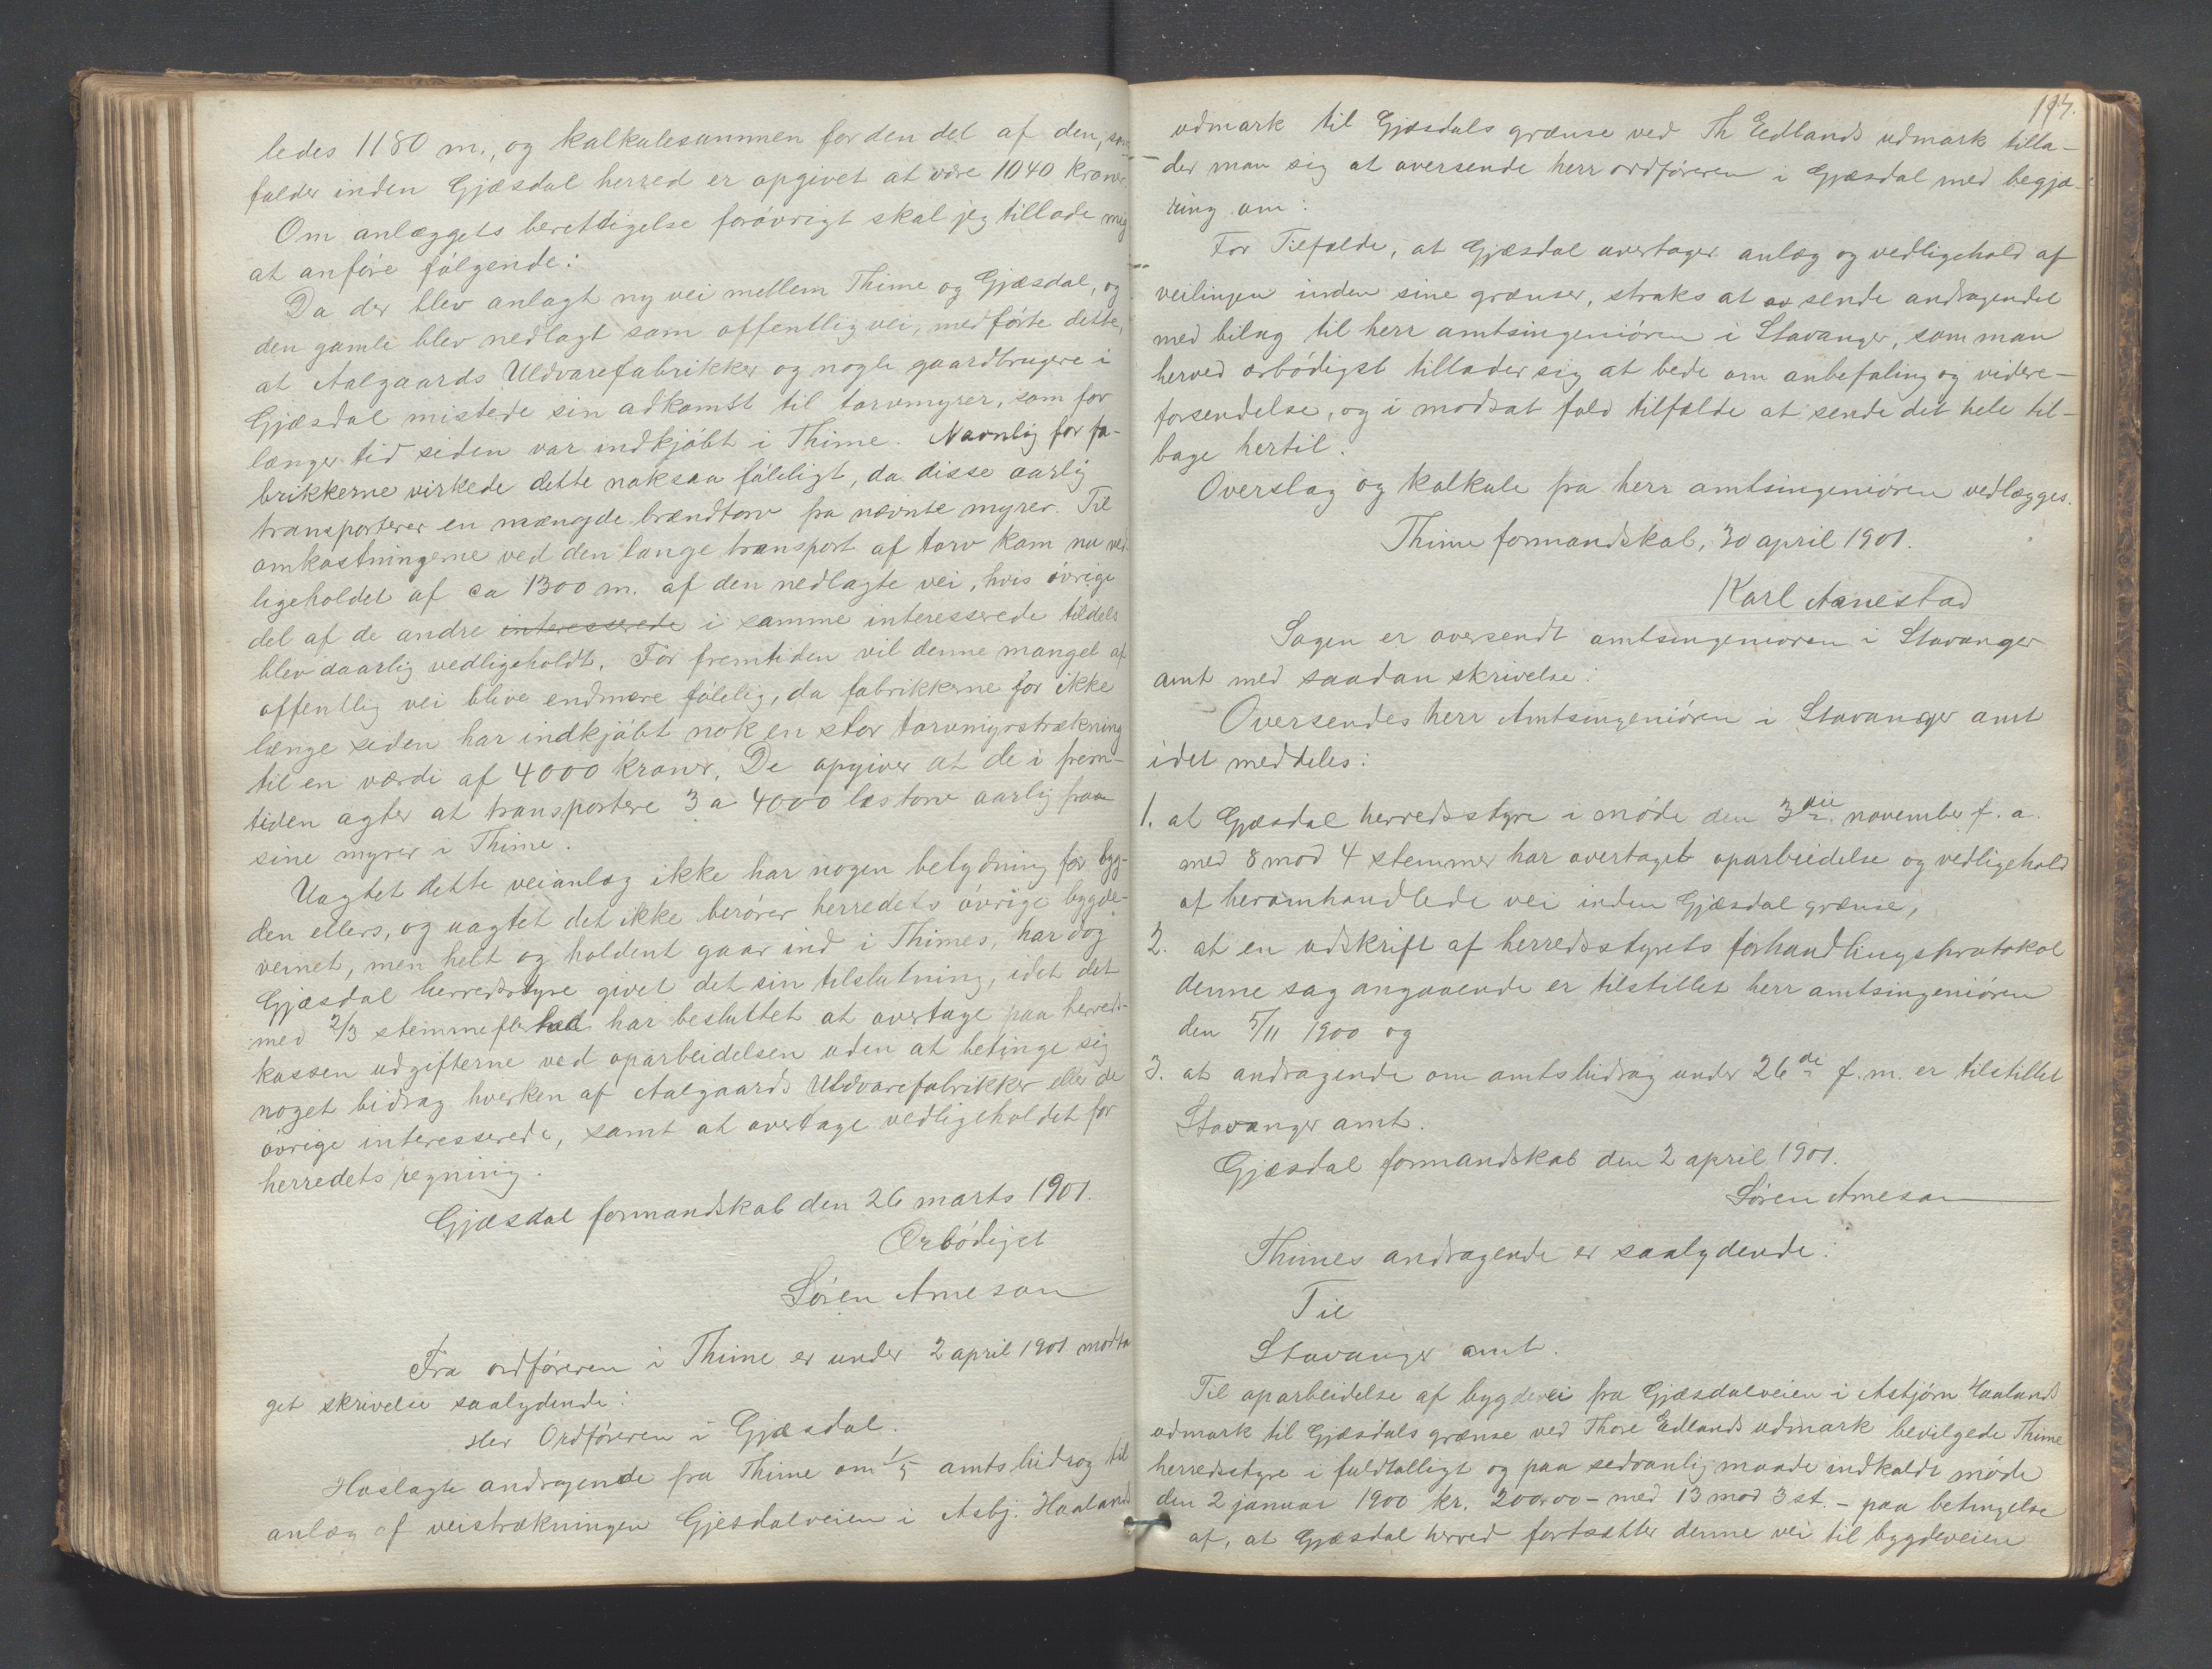 ledes 1180 m., og kalkulesummen for den del af den, som
falder inden Gjæsdal herred er opgivet at være 1040 kroner.
Om anlæggets berettigelse forøvrigt skal jeg tillade mig
at anføre følgende:
Da der blev anlagt ny vei mellem Thime og Gjæsdal, og
den gamle blev nedlagt som offentlig vei, medførte dette,
at Aalgaards Uldvarefabrikker og nogle gaardbrugere i
Gjæsdal mistede sin adkomst til torvmyrer, som for
længer tid siden var indkjøbt i Thime. Navnlig for fa-
brikkerne virkede dette noksaa føleligt, da disse aarlig
transporterer en mængde brændtorv fra nævnte myrer. Til
omkostningerne ved den lange transport af torv kom nu ved-
ligeholdet af ca 1300 m. af den nedlagte vei, hvis øvrige
del af de andre interesserede i samme interesserede tildels
blev daarlig vedligeholdt. For fremtiden vil denne mangel af
offentlig vei blive endmere følelig, da fabrikkerne for ikke
længe siden har indkjøbt nok en stor torvmyrstrækning
til en værdi af 4000 kroner. De opgiver at de i frem-
tiden agter at transportere 3 a 4000 læs torv aarlig fra
sine myrer i Thime.
Uagtet dette veianlæg ikke har nogen betydning for byg-
den ellers, og uagtet det ikke berører herredets øvrige bygde-
veinet, men helt og holdent gaar ind i Thimes, har dog
Gjæsdal herredsstyre givet det sin tilslutning, idet det
med 2/3 stemmeflerhed har besluttet at overtage paa herreds-
kassen udgifterne ved oparbeidelsen uden at betinge sig
noget bidrag hverken af Aalgaards Uldvarefabrikker eller de
øvrige interesserede, samt at overtage vedligeholdet for
herredets regning.
Gjæsdal formandskab den 26 marts 1901.
Ærbødigst
Søren Arneson
Fra ordføreren i Thime er under 2 april 1901 modta
get skrivelse saalydende:
Her Ordføreren i Gjæsdal.
Hoslagte andragende fra Thime om 1/5 amtsbidrag til
anlæg af veistrækningen Gjesdalveien i Asbj. Haalands
194.
udmark til Gjæsdals grænse ved Th Eedlands udmark tilla-
der man sig at oversende herr ordføreren i Gjæsdal med begjæ-
ring om:
For Tilfælde, at Gjæsdal overtager anlæg og vedligehold af
veilinjen inden sine grænser, straks at sende andragendet
med bilag til herr amtsingeniøren i Stavanger, som man
herved ærbødigst tillader sig at bede om anbefaling og videre-
forsendelse, og i modsat fald tilfælde at sende det hele til-
bage hertil.
Overslag og kalkule fra herr amtsingeniøren vedlægges.
Thime formandskab, 30 april 1901.
Karl Aanestad
Sagen er oversendt amtsingeniøren i Stavanger
amt med saadan skrivelse:
Oversendes herr Amtsingeniøren i Stavanger amt
idet meddeles:
1. at Gjæsdal herredsstyre i møde den 3die november f. a.
med 8 mod 4 stemmer har overtaget oparbeidelse og vedligehold
af heromhandlede vei inden Gjæsdal grænse,
2. at en udskrift af herredsstyrets forhandlingsprotokol
denne sag angaaende er tilstillet herr amtsingeniøren
den 5/11 1900 og
3. at andragende om amtsbidrag under 26de f. m. er tilstillet
Stavanger amt.
Gjæsdal formandskab den 2 april 1901.
Søren Arneson
Thimes andragende er saalydende:
Til
Stavanger amt.
Til oparbeidelse af bygdevei fra Gjæsdalveien i Asbjørn Haalands
udmark til Gjæsdals grænse ved Thore Edlands udmark bevilgede Thime
herredsstyre i fuldtalligt og paa sedvanlig maade indkaldt møde
den 2 januar 1900 kr. 200.00 – med 13 mod 3 st. – paa betingelse
af, at Gjæsdal herred fortsætter denne vei til bygdeveien